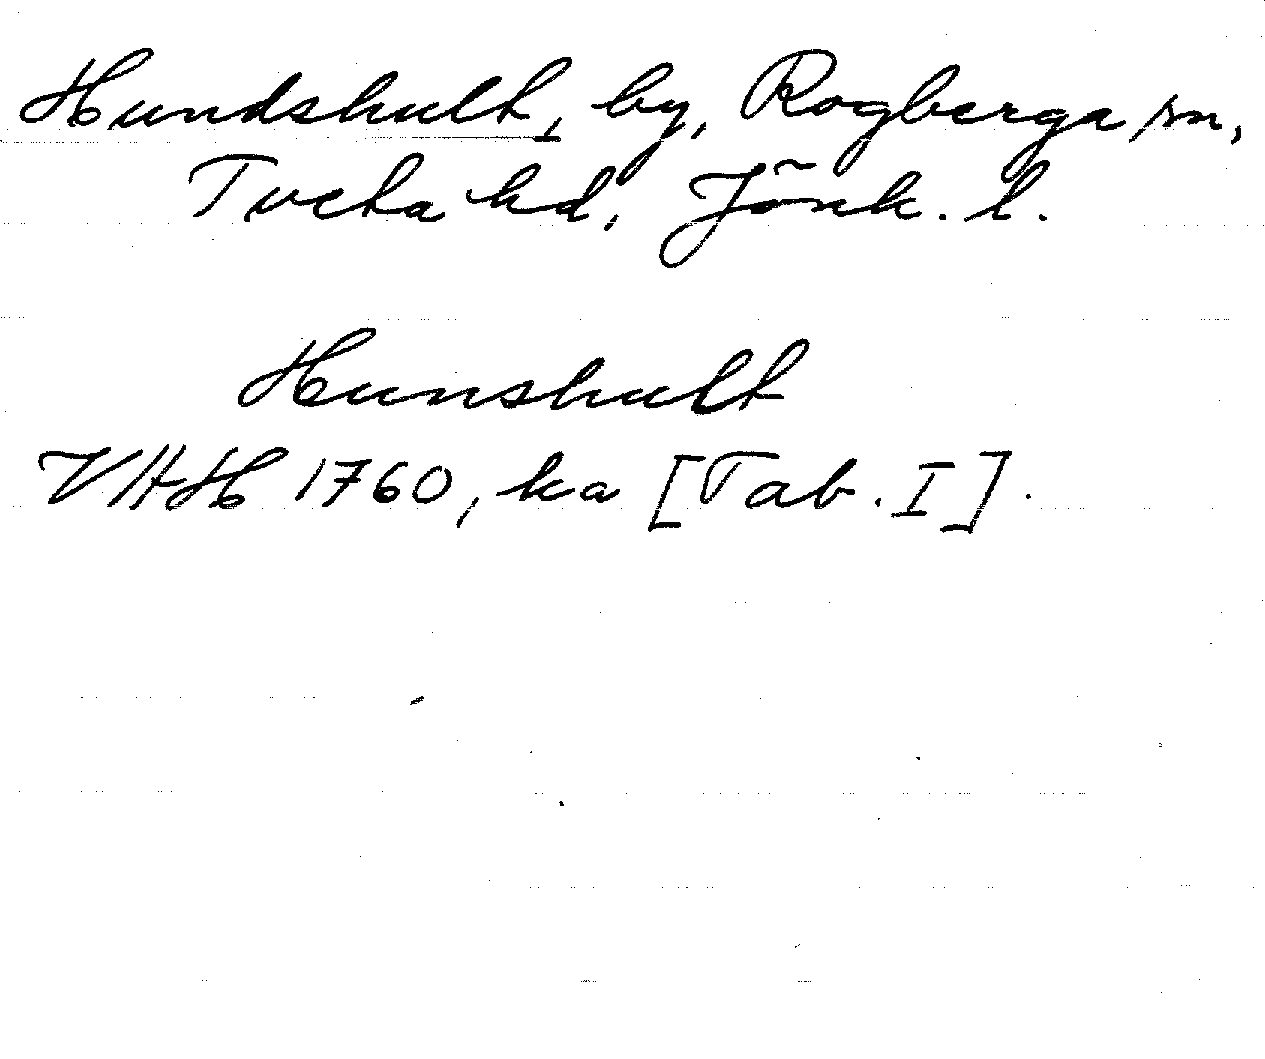 Hundshult, by, Rogberga sn,
Tveta hd, Jönk. l.
Hunshult
VHH 1760, ka [Tab. I].